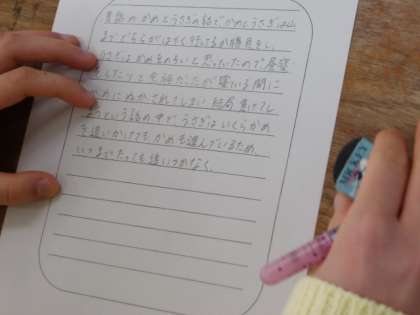 童話のかめとうさぎの話でかめとうさぎは山
までどちらがはやく行けるか勝負をし、
うさぎはかめをおそいと思っていたので昼寝
をしたりと余裕だったが寝ている間に
かめにぬかされてしまい結局負けてし
まうという話の中で、うさぎはいくらかめ
を追いかけてもかめも進んでいるため、
いつまでたっても追いつかなく。